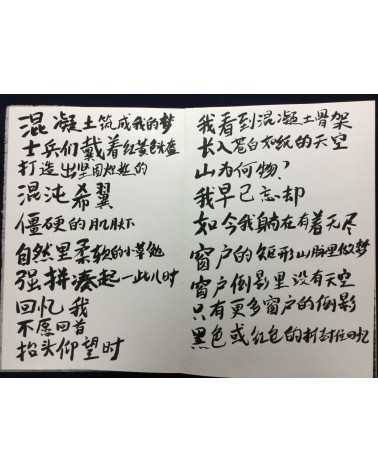 混凝土筑成我的梦
士兵们戴着红黄色头盔
打造出坚固灿烂的
混沌希翼
僵硬的肌肤下
自然里柔软的小草勉
强拼凑起一些儿时
回忆 我
不愿回首
抬头仰望时
我看到混凝土骨架
长入苍白如纸的天空
山为何物？
我早已忘却
如今我躺在有着无尽
窗户的矩形山脉里做梦
窗户倒影里没有天空
只有更多窗户的倒影
黑色或红色的 封住回忆